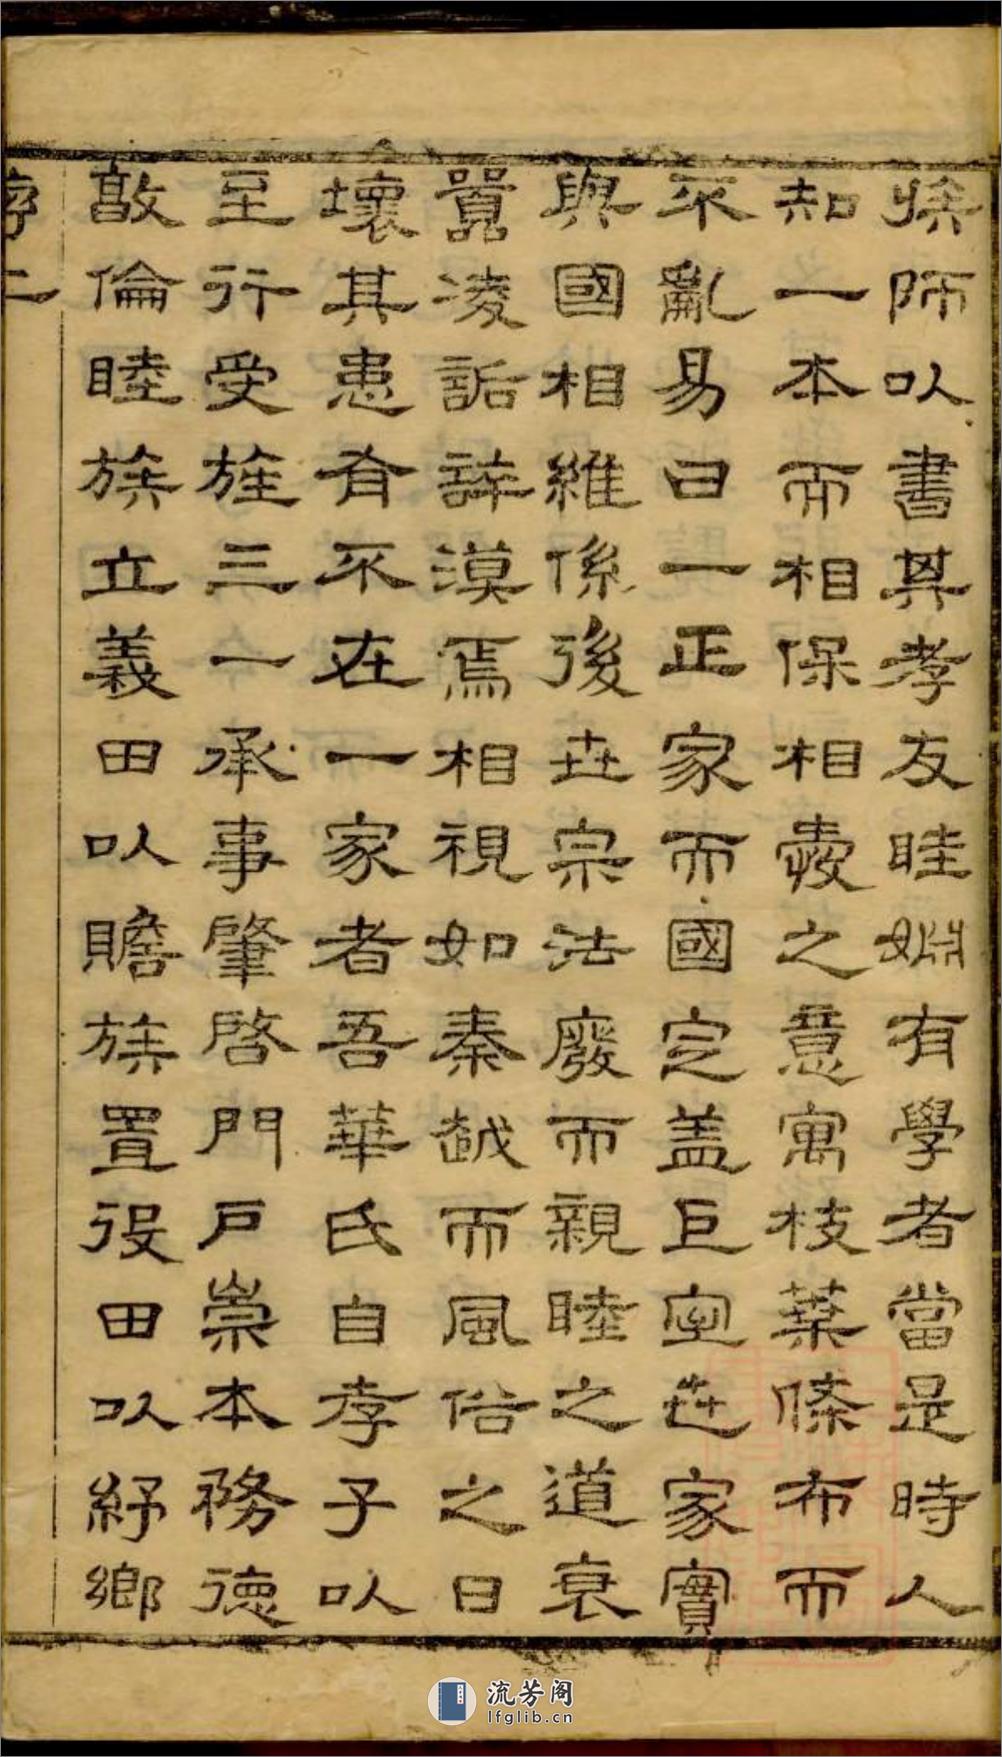 族師以書其孝友睦婣有學者當是時人
知一本而相保相愛之意寓枝葉條布而
不亂易曰一正家而國定蓋巨室世家實
與國相維係後世宗法廢而親睦之道衰
囂凌詬誶漠焉相視如秦越而風俗之日
壞其患有不在一家者吾華氏自孝子以
至行受旌三一承事肇啓門戶崇本務德
敦倫睦族立義田以贍族置役田以紓鄉
序 二
流芳阁
lfglib.cn